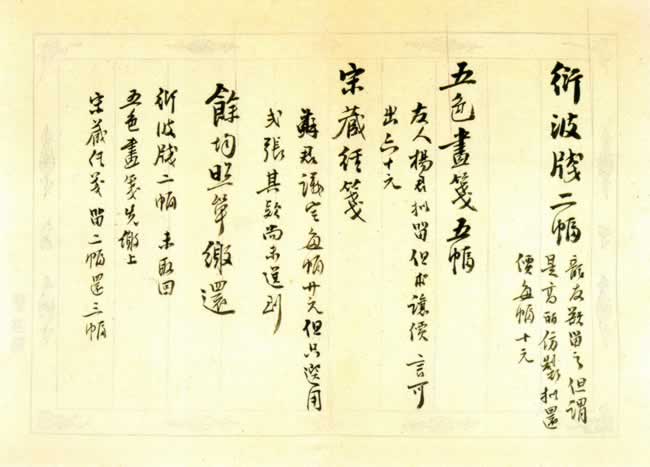 衍波牋二幅
龍友欵留之但謂
是高丽仿製拟還
價每幅十元
五色畫箋五幅
友人楊君拟留但求讓價言可
出六十元
宋藏經箋
蘇君議定每幅廿元但只選用
弍張其款尚未送到
餘均照單繳還
衍波牋二幅 未取回
五色畫箋先繳上
宋藏經箋留二幅還三幅